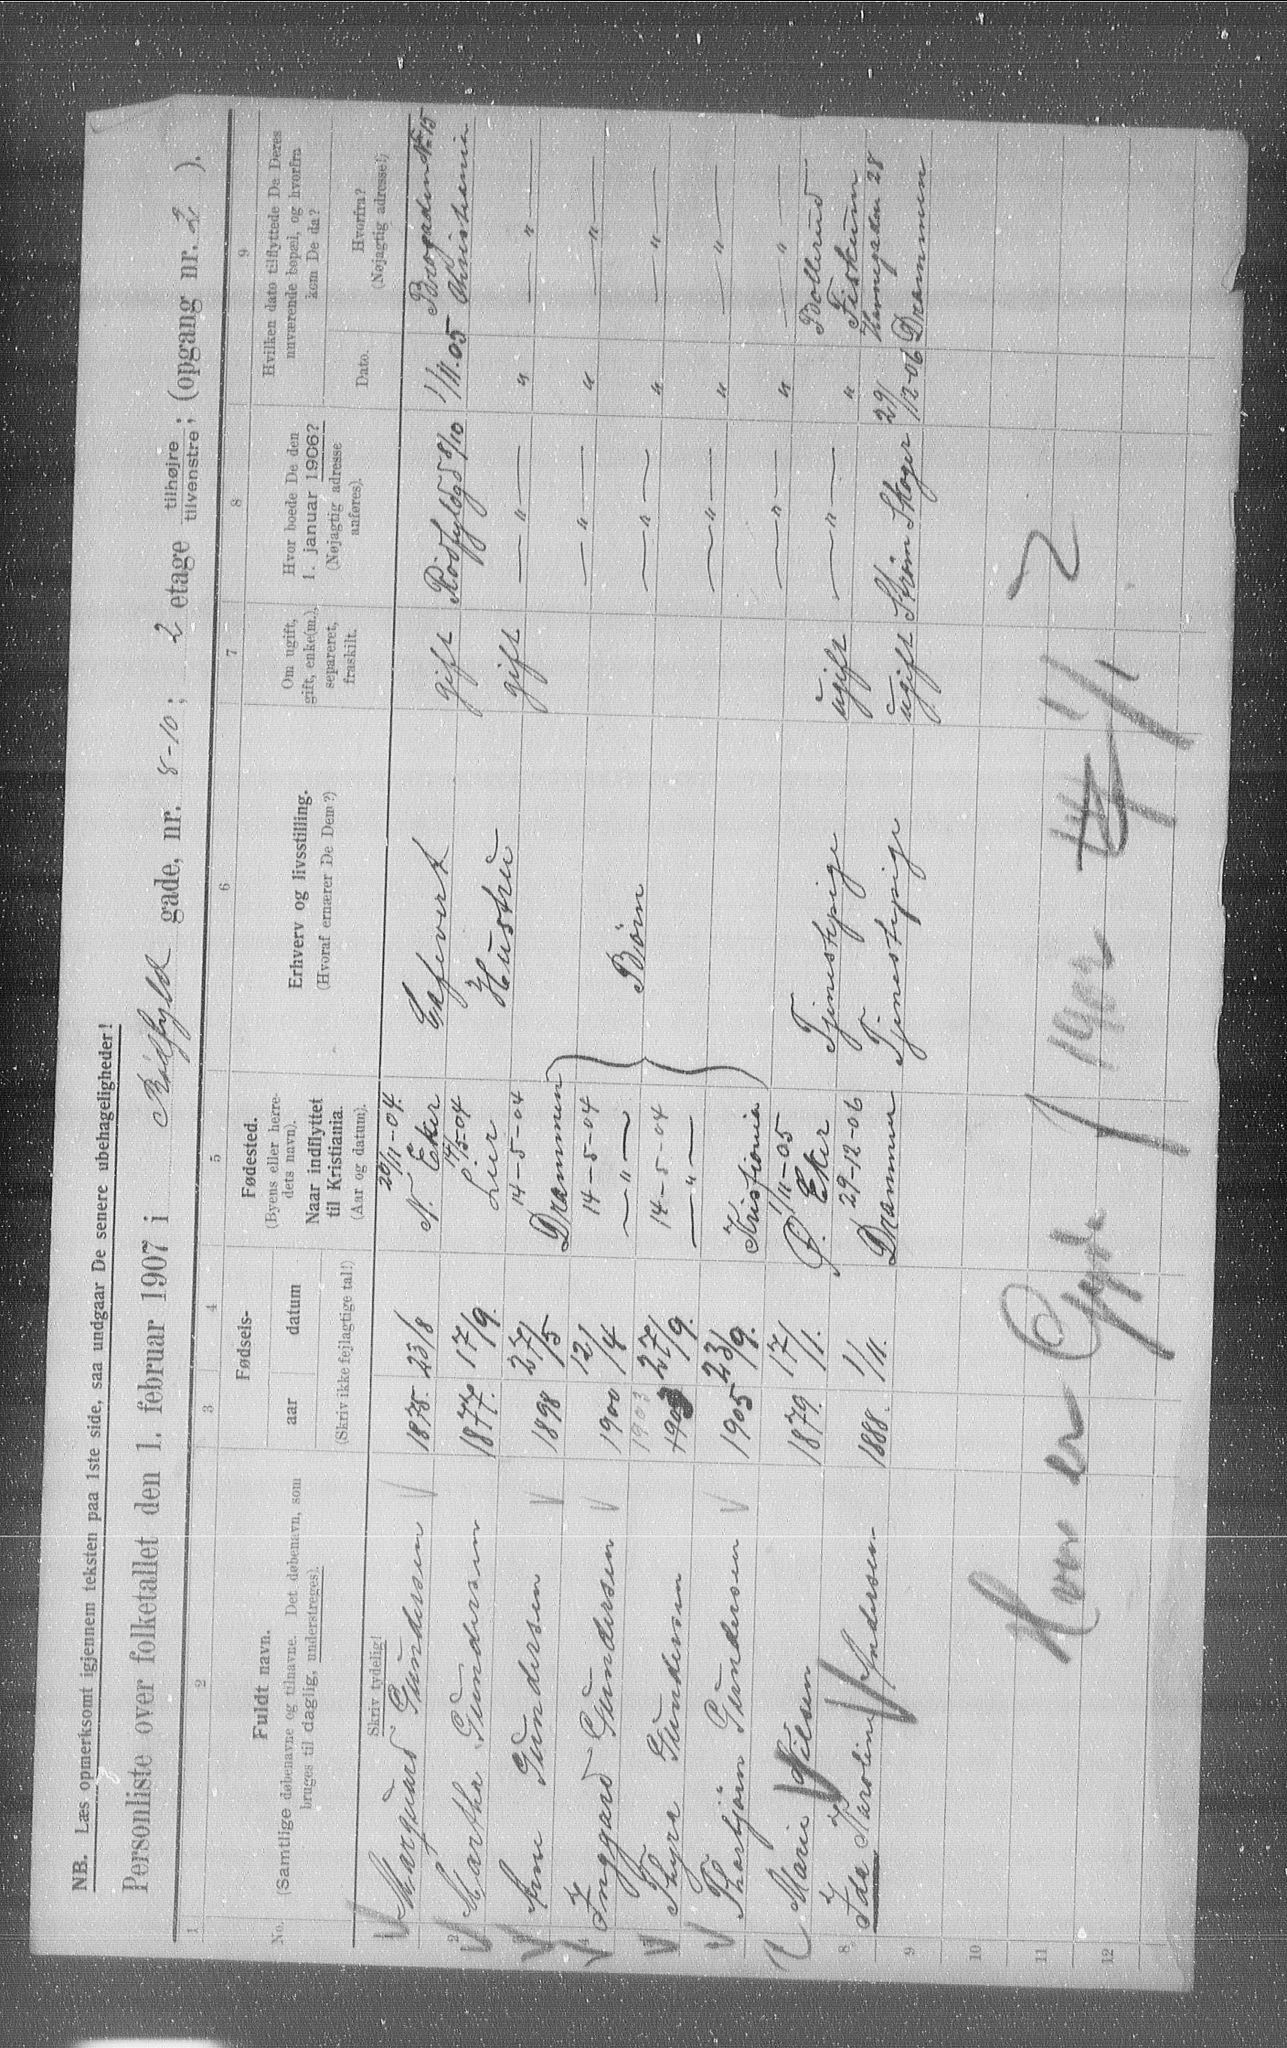 NB. Læs opmerksomt igjennem teksten paa 1ste side, saa undgaar De senere ubehageligheder!
Personliste over folketallet den 1. februar 1907 i Rødfyld gade, nr. 8-10; 2 etage tilhøjre tilvenstre; (opgang nr. 2).
1 2 3 4 5 6 7 8 9
No.
Fuldt navn.
(Samtlige døbenavne og tilnavne. Det døbenavn, som
bruges til daglig, understreges).
Skriv tydelig!
Fødsels-
aar datum
(Skriv ikke fejlagtige tal!)
Fødested.
(Byens eller herre-
dets navn).
Naar indflyttet
til Kristiania.
(Aar og datum).
Erhverv og livsstilling.
(Hvoraf ernærer De Dem?)
Om ugift,
gift, enke(m.),
separeret,
fraskilt.
Hvor boede De den
1. januar 1906?
(Nøjagtig adresse
anføres).
Hvilken dato tilflyttede De Deres
nuværende bopæl, og hvorfra
kom De da?
Dato.
Hvorfra?
(Nøjagtig adresse!)
Gundersen 1875. 23/8 20/11-04. N. Eker gift Rödfyldgd 8/10 1/11.05 Brogaden No 15 Christiania
2 Martha Gundersen 1877. 17/9. 14/5-04 Lier Hustru gift — " — " — " —
Gundersen 1898 27/5 14-5-04 Drammen — " — " — " —
4 Gundersen 1900 12/4 14-5-04 — " — Børn — " — " — " —
Thyra Gundersen 1903 1903 27/9. 14-5-04 — " — — " — " — " —
Thorbjörn Gundersen 1905 23/9. Kristiania — " — " — " —
Marie Nilsen 1879. 17/1. 1/11-05 Ø. Eker Tjenestepige ugift — " — " Bollerud Fiskum
8 Ida Karoline Andersen 1888. 1/11. 29-12-06 Drammen Tjenestepige ugift Strøm Skoger 29/12-06 28 Drammen
9
10
11
12